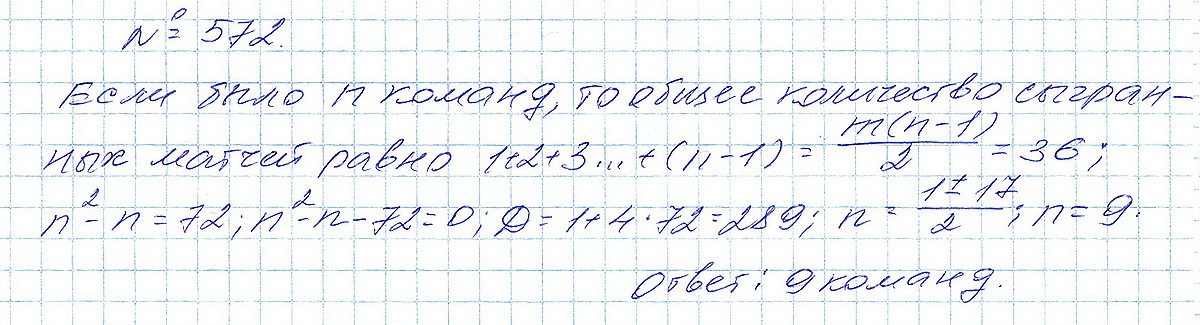 № 572.
Если было n команд, то общее количество сыгран-
ных матчей равно 1+2+3...+(n-1) = m(n-1)/2 = 36;
n²-n=72; n²-n-72=0; D=1+4·72=289; n = 1±17/2; n=9.
Ответ: 9 команд.